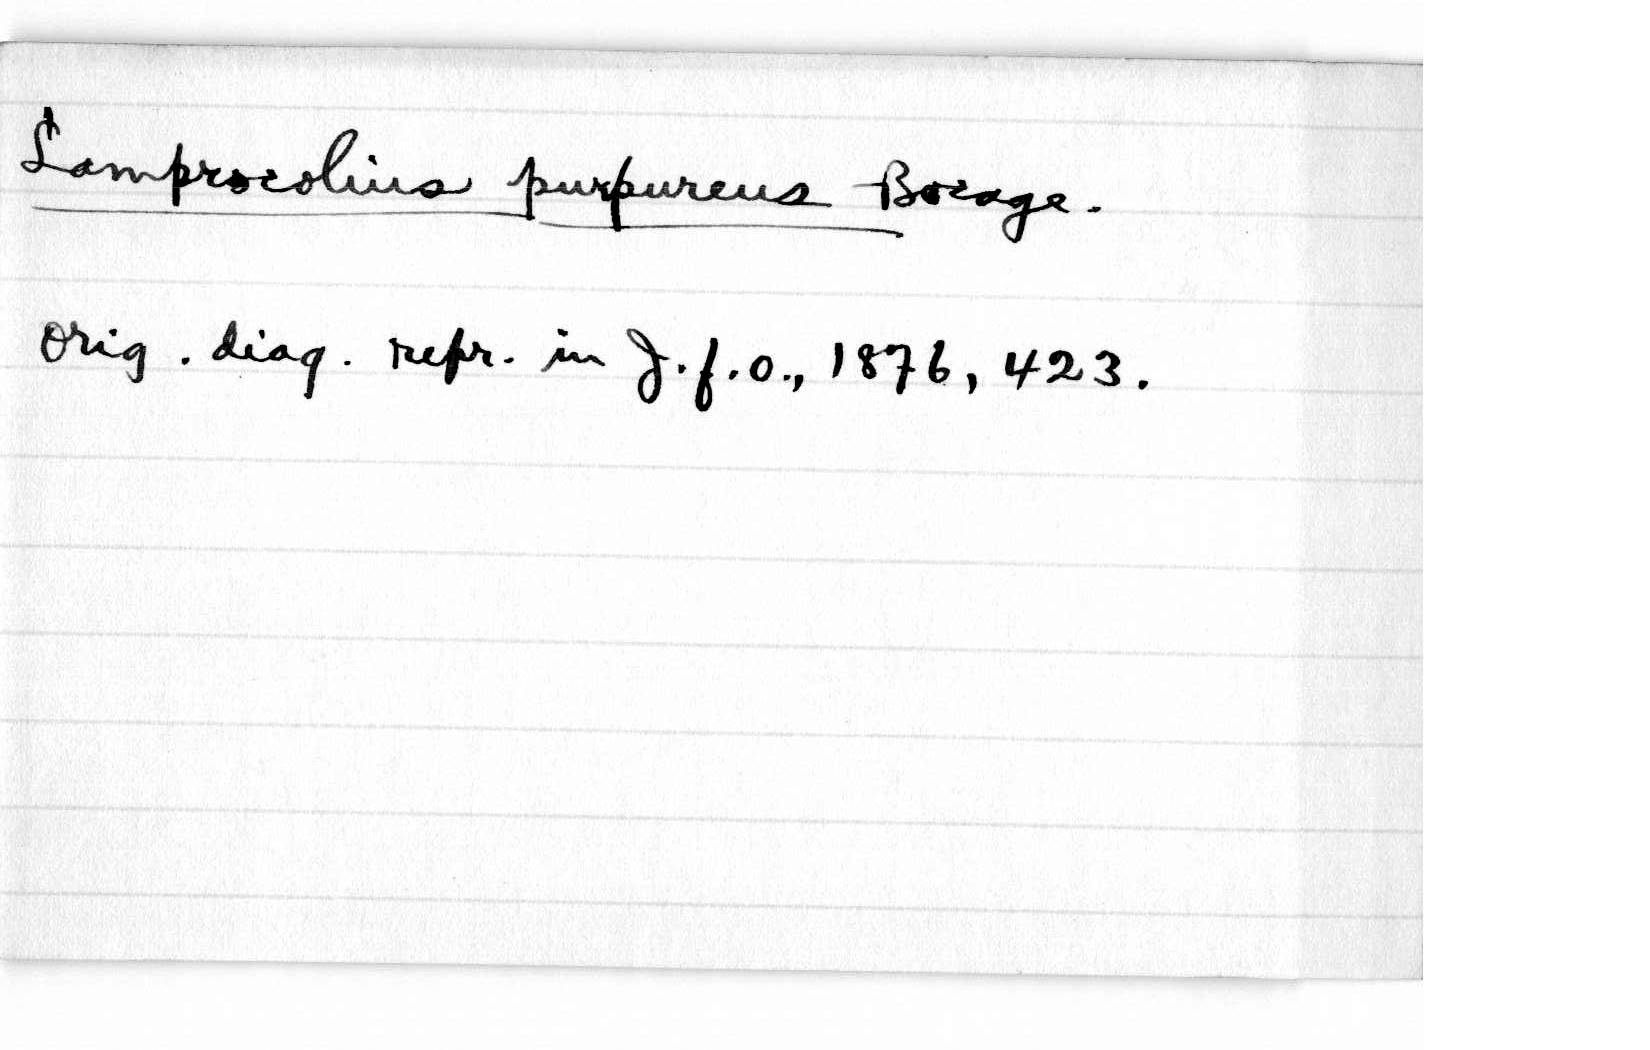 Lamprocolius purpureus Bocage.
Orig. diag. repr. in J.f.O., 1876, 423.